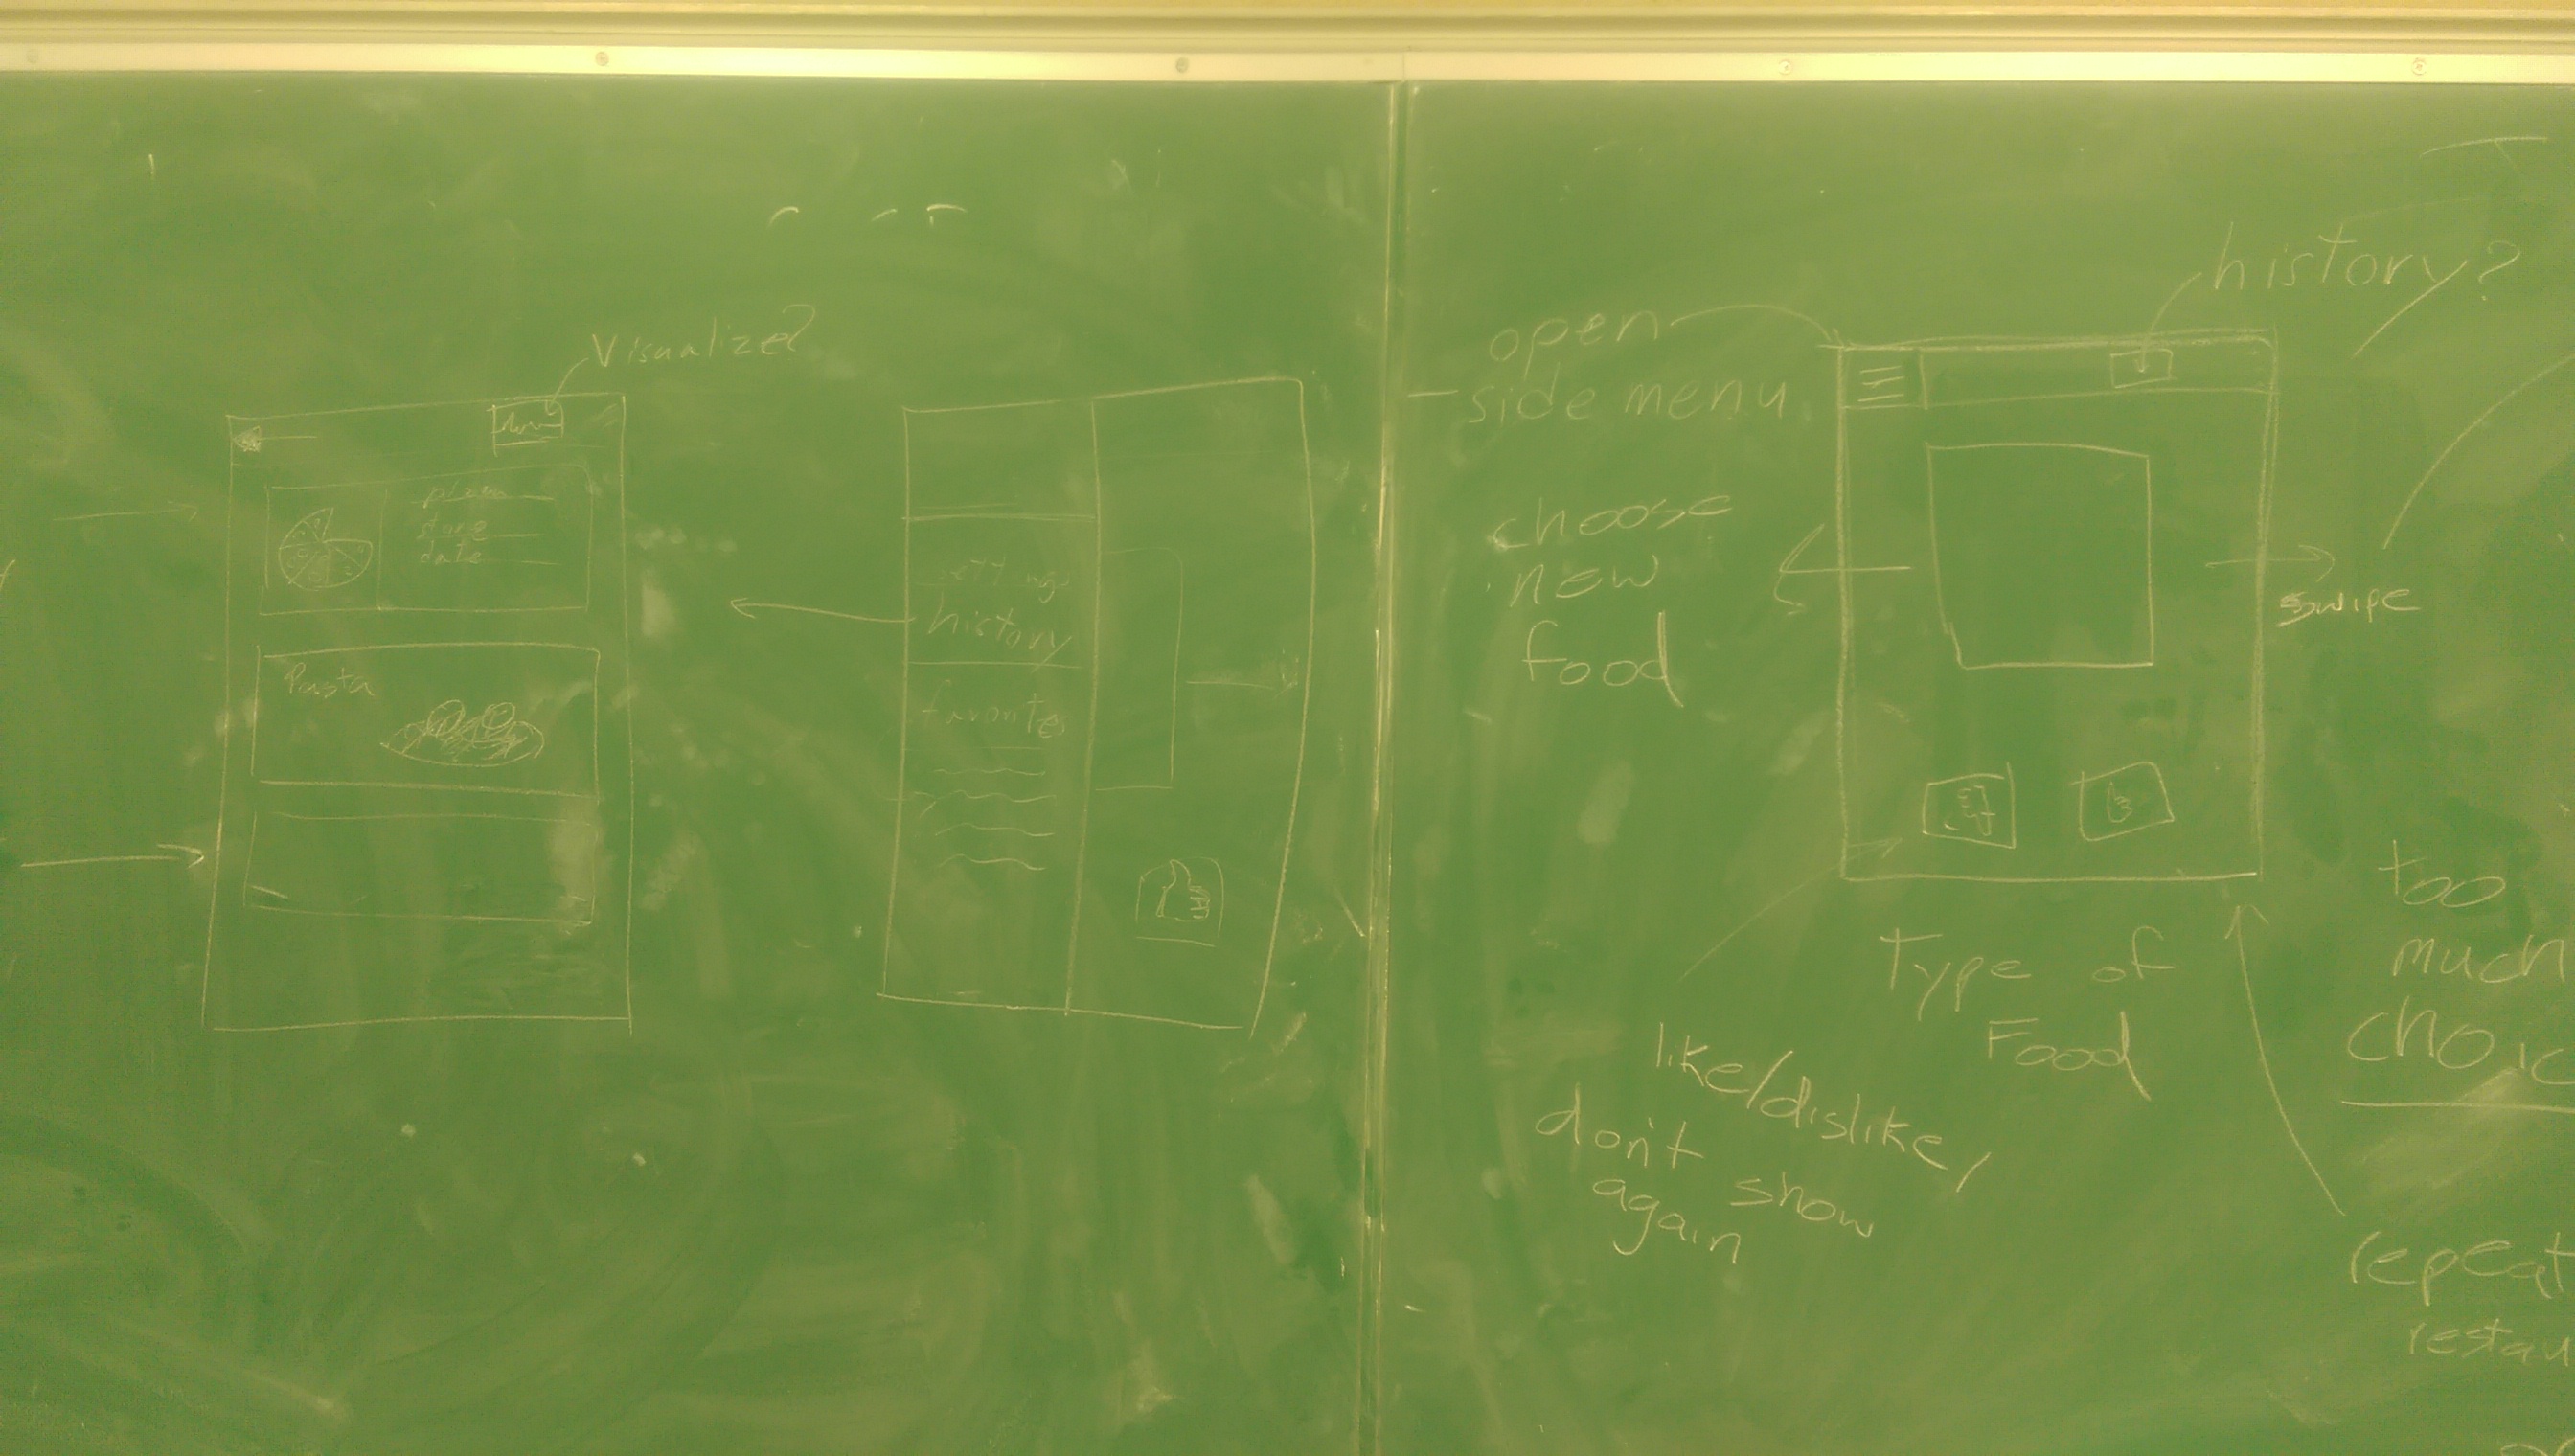 Visualize?
pizza
store
date
Pasta
settings
history
favorites
open
side menu
choose
new
food
history?
swipe
Type of
Food
like/dislike,
don't show
again
too
much
choic
repeat
restau